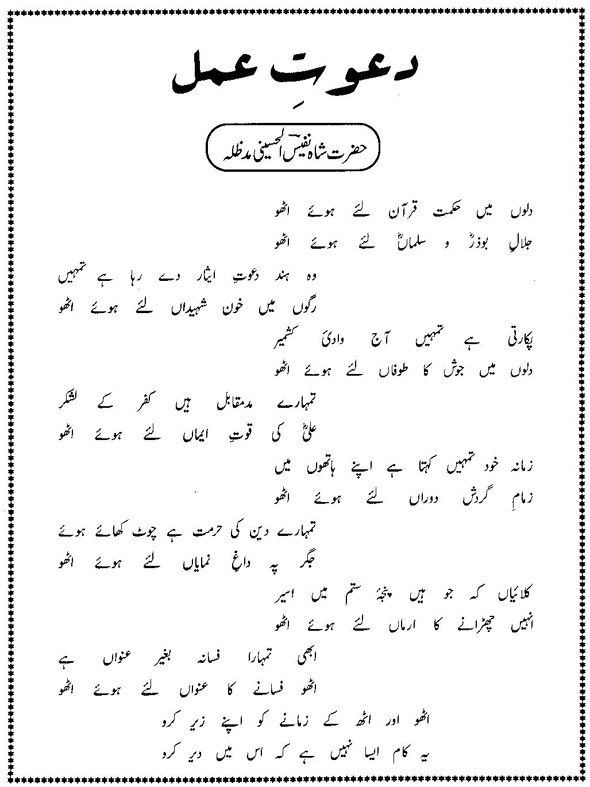 دعوتِ عمل
حضرت شاہ نفیس الحسینی مدظلہ
دلوں میں حکمت قرآن لئے ہوئے اٹھو
جلالِ بوذرؓ و سلماںؓ لئے ہوئے اٹھو
وہ ہند دعوتِ ایثار دے رہا ہے تمہیں
رگوں میں خون شہیداں لئے ہوئے اٹھو
پکارتی ہے تمہیں آج وادیٔ کشمیر
دلوں میں جوش کا طوفاں لئے ہوئے اٹھو
تمہارے مدمقابل ہیں کفر کے لشکر
علیؓ کی قوتِ ایماں لئے ہوئے اٹھو
زمانہ خود تمہیں کہتا ہے اپنے ہاتھوں میں
زمامِ گردش دوراں لئے ہوئے اٹھو
تمہارے دین کی حرمت ہے چوٹ کھائے ہوئے
جگر پہ داغِ نمایاں لئے ہوئے اٹھو
کلائیاں کہ جو ہیں پنجۂ ستم میں اسیر
انہیں چھڑانے کا ارماں لئے ہوئے اٹھو
ابھی تمہارا فسانہ بغیر عنواں ہے
اٹھو فسانے کا عنواں لئے ہوئے اٹھو
اٹھو اور اٹھ کے زمانے کو اپنے زیر کرو
یہ کام ایسا نہیں ہے کہ اس میں دیر کرو